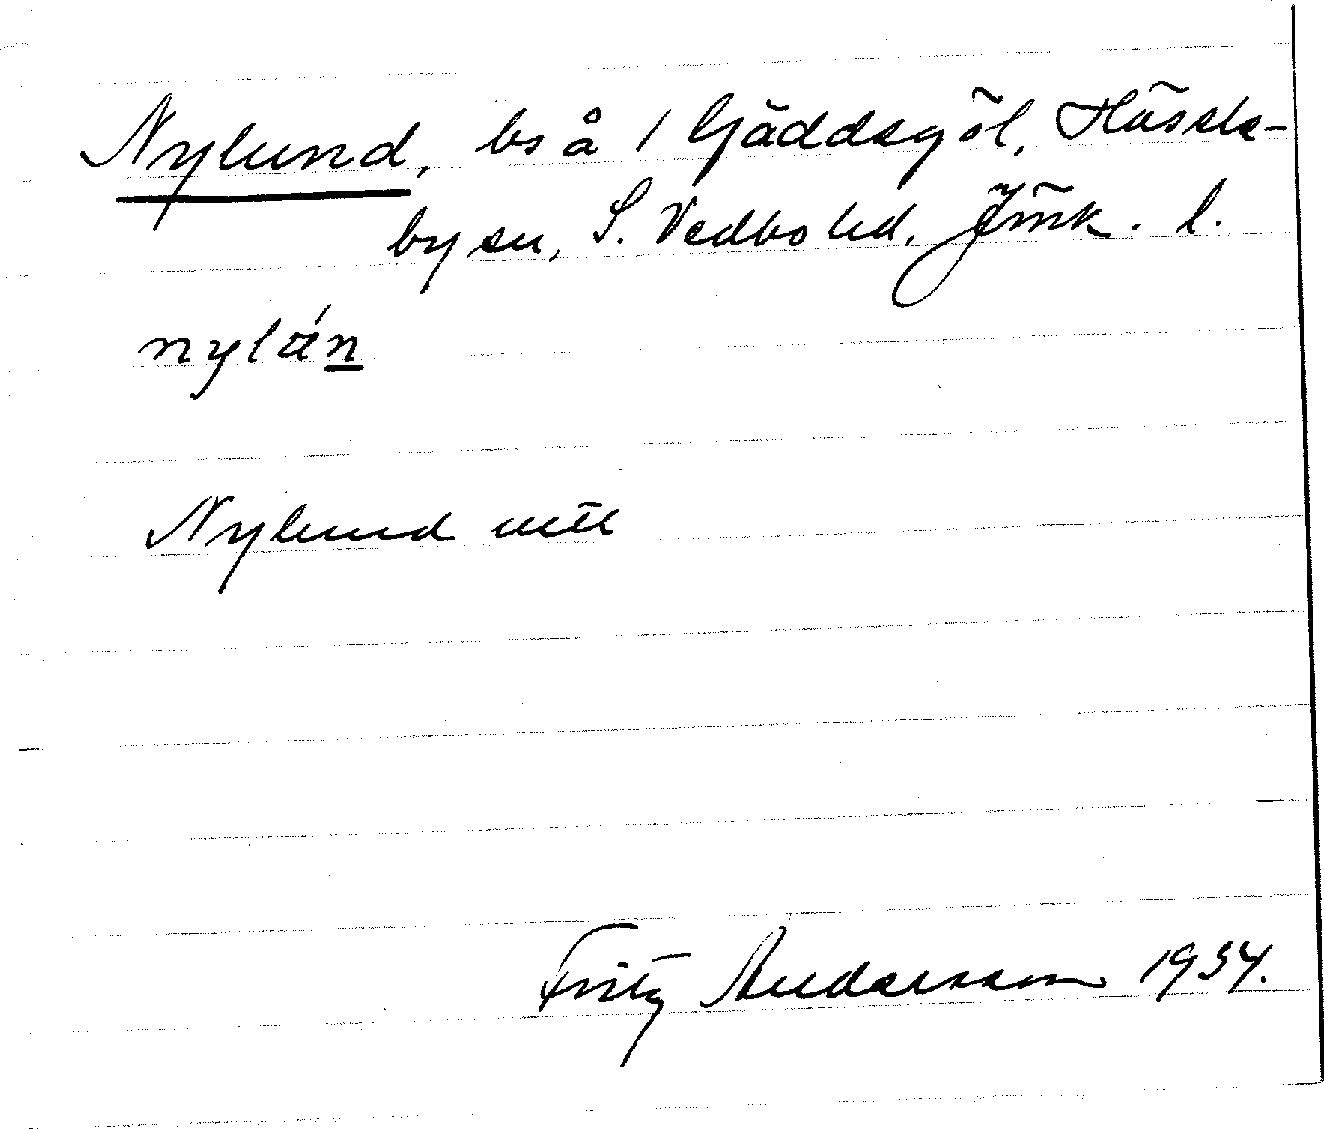 Nylund, bs å 1 Gäddegöl, Hässle-
by sn, S. Vedbo hd, Jönk. l.
nylán
Nylund
Fritz Andersson 1934.